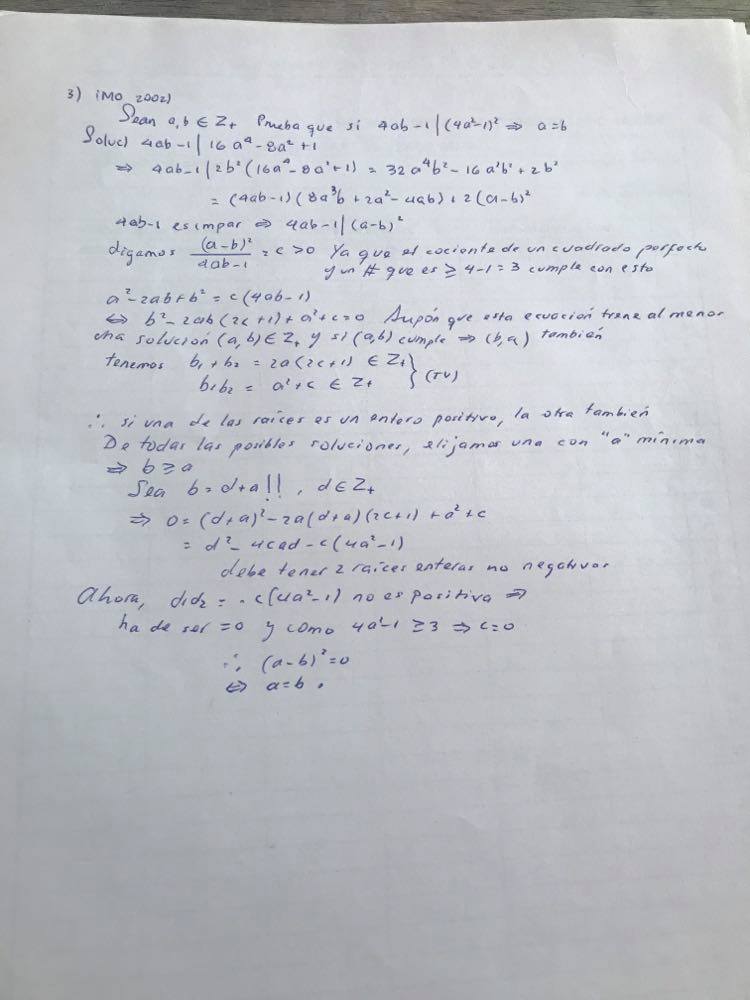 3) IMO 2002)
Sean a,b ∈ Z+ Prueba que si 4ab-1 | (4a²-1)² ⇒ a=b
Soluc) 4ab-1 | 16a⁴-8a²+1
⇒ 4ab-1 | 2b²(16a⁴-8a²+1) = 32a⁴b²-16a²b²+2b²
= (4ab-1)(8a³b+2a²-4ab)+2(a-b)²
4ab-1 es impar ⇒ 4ab-1 | (a-b)²
digamos (a-b)²/4ab-1 = c > 0 Ya que el cociente de un cuadrado perfecto
y un # que es ≥ 4-1=3 cumple con esto
a²-2ab+b² = c(4ab-1)
⇔ b²-2ab(2c+1)+a²+c=0 Supón que esta ecuación tiene al menor
una solución (a,b) ∈ Z+ y si (a,b) cumple ⇒ (b,a) también
tenemos b₁+b₂ = 2a(2c+1) ∈ Z+
b₁b₂ = a²+c ∈ Z+ } (TV)
∴ si una de las raíces es un entero positivo, la otra también
De todas las posibles soluciones, elijamos una con "a" mínima
⇒ b≥a
Sea b=d+a!!, d∈Z+
⇒ 0=(d+a)²-2a(d+a)(2c+1)+a²+c
= d²-4cad-c(4a²-1)
debe tener 2 raíces enteras no negativas
Ahora, d₁d₂ = -c(4a²-1) no es positiva ⇒
ha de ser =0 y como 4a²-1 ≥3 ⇒ c=0
∴ (a-b)²=0
⇔ a=b.